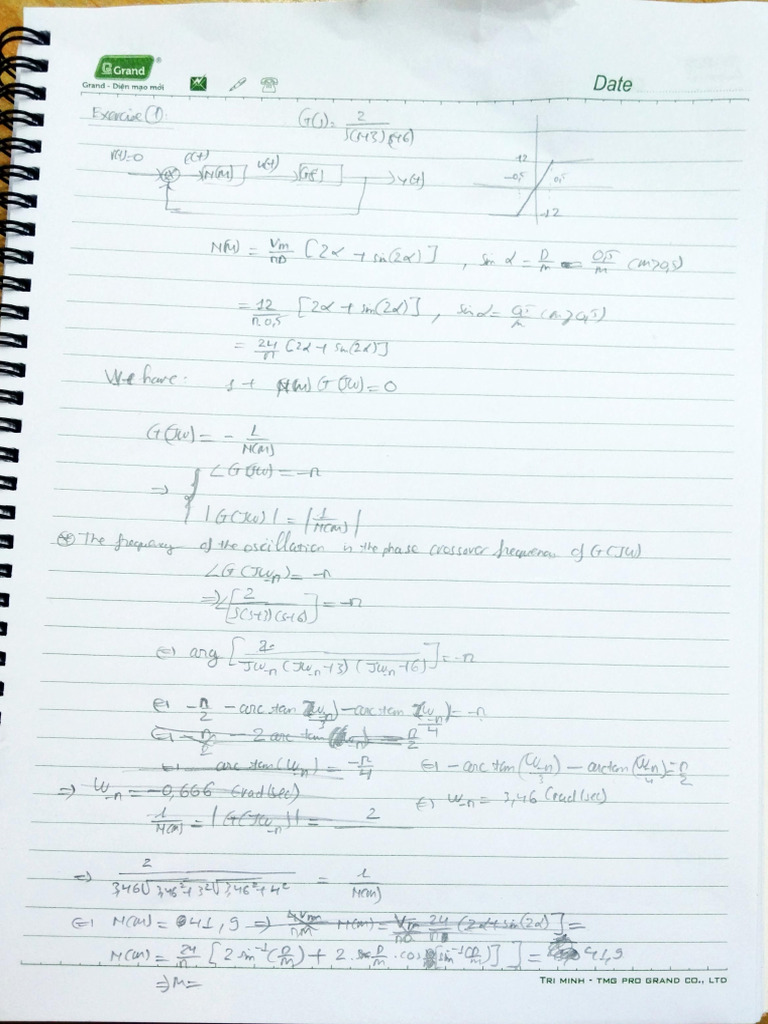 Grand
Grand - Diện mạo mới
Date
Exercise (1):
G(s) = 2 / s(s+3)(s+6)
r(t)=0 e(t) N(M) u(t) G(s) y(t)
12 -0,5 0,5 -12
N(M) = Vm/πD [2α + sin(2α)], sin α = D/M = 0,5/M (M>0,5)
= 12/π0,5 [2α + sin(2α)], sin α = 0,5/M (M>0,5)
= 24/π [2α + sin(2α)]
We have: 1 + N(M) G(jω) = 0
G(jω) = - 1/N(M)
=> { ∠G(jω) = -π
|G(jω)| = |1/N(M)|
⊛ The frequency of the oscillation is the phase crossover frequency of G(jω)
∠G(jω-π) = -π
=> ∠[2 / s(s+3)(s+6)] = -π
⇔ arg [2 / jω-π (jω-π+3)(jω-π+6)] = -π
⇔ -π/2 - arctan (ω-π/3) - arctan (ω-π/4) = -π
⇔ -π/2 - 2 arctan (ω-π) = π/2
⇔ arctan(ω-π) = -π/4 ⇔ - arctan(ω-π/3) - arctan(ω-π/4) = π/2
=> ω-π = -0,666 (rad/sec) ⇔ ω-π = 3,46 (rad/sec)
1/N(M) = |G(jω-π)| = 2
=> 2 / 3,46√3,46²+3²√3,46²+4² = 1/N(M)
⇔ N(M) = 41,9 => N(M) = 24/π (2α + sin(2α)] =
N(M) = 24/π [2 sin⁻¹(D/M) + 2. D/M . cos [sin⁻¹(D/M)]] = 41,9
=> M =
TRI MINH - TMG PRO GRAND CO., LTD